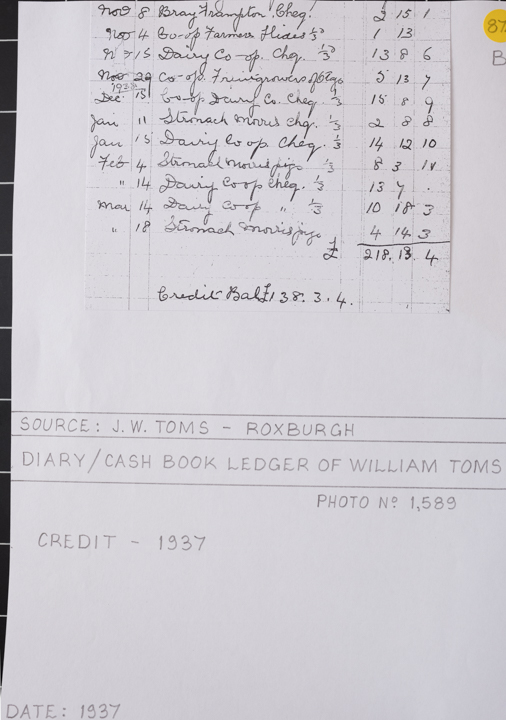 Nov 8 Bray Frampton Cheq. 2 15 1
Nov 4 Co-op Farmers Hides 1/3 1 13
N 15 Dairy Co-op. Chq. 1/3 13 8 6
Nov 29 Co-op. Fruingrowers 5 13 7
Dec. 15 Co-op Dairy Co. Cheq. 1/3 15 8 9
Jan 11 Stronach Morris chq. 1/3 2 8 8
Jan 15 Dairy Co op Cheq. 1/3 14 12 10
Feb 4 Stronach Morris pigs 1/3 8 3
" 14 Dairy Co op Cheq. 1/3 13 7 .
Mar 14 Dairy Co op " 1/3 10 18 3
" 18 Stronach Morris pigs 4 14 3
£ 218. 13 4
Credit Bal £138. 3. 4.
87
B
SOURCE: J.W. TOMS - ROXBURGH
DIARY/CASH BOOK LEDGER OF WILLIAM TOMS
PHOTO Nº 1,589
CREDIT - 1937
DATE: 1937